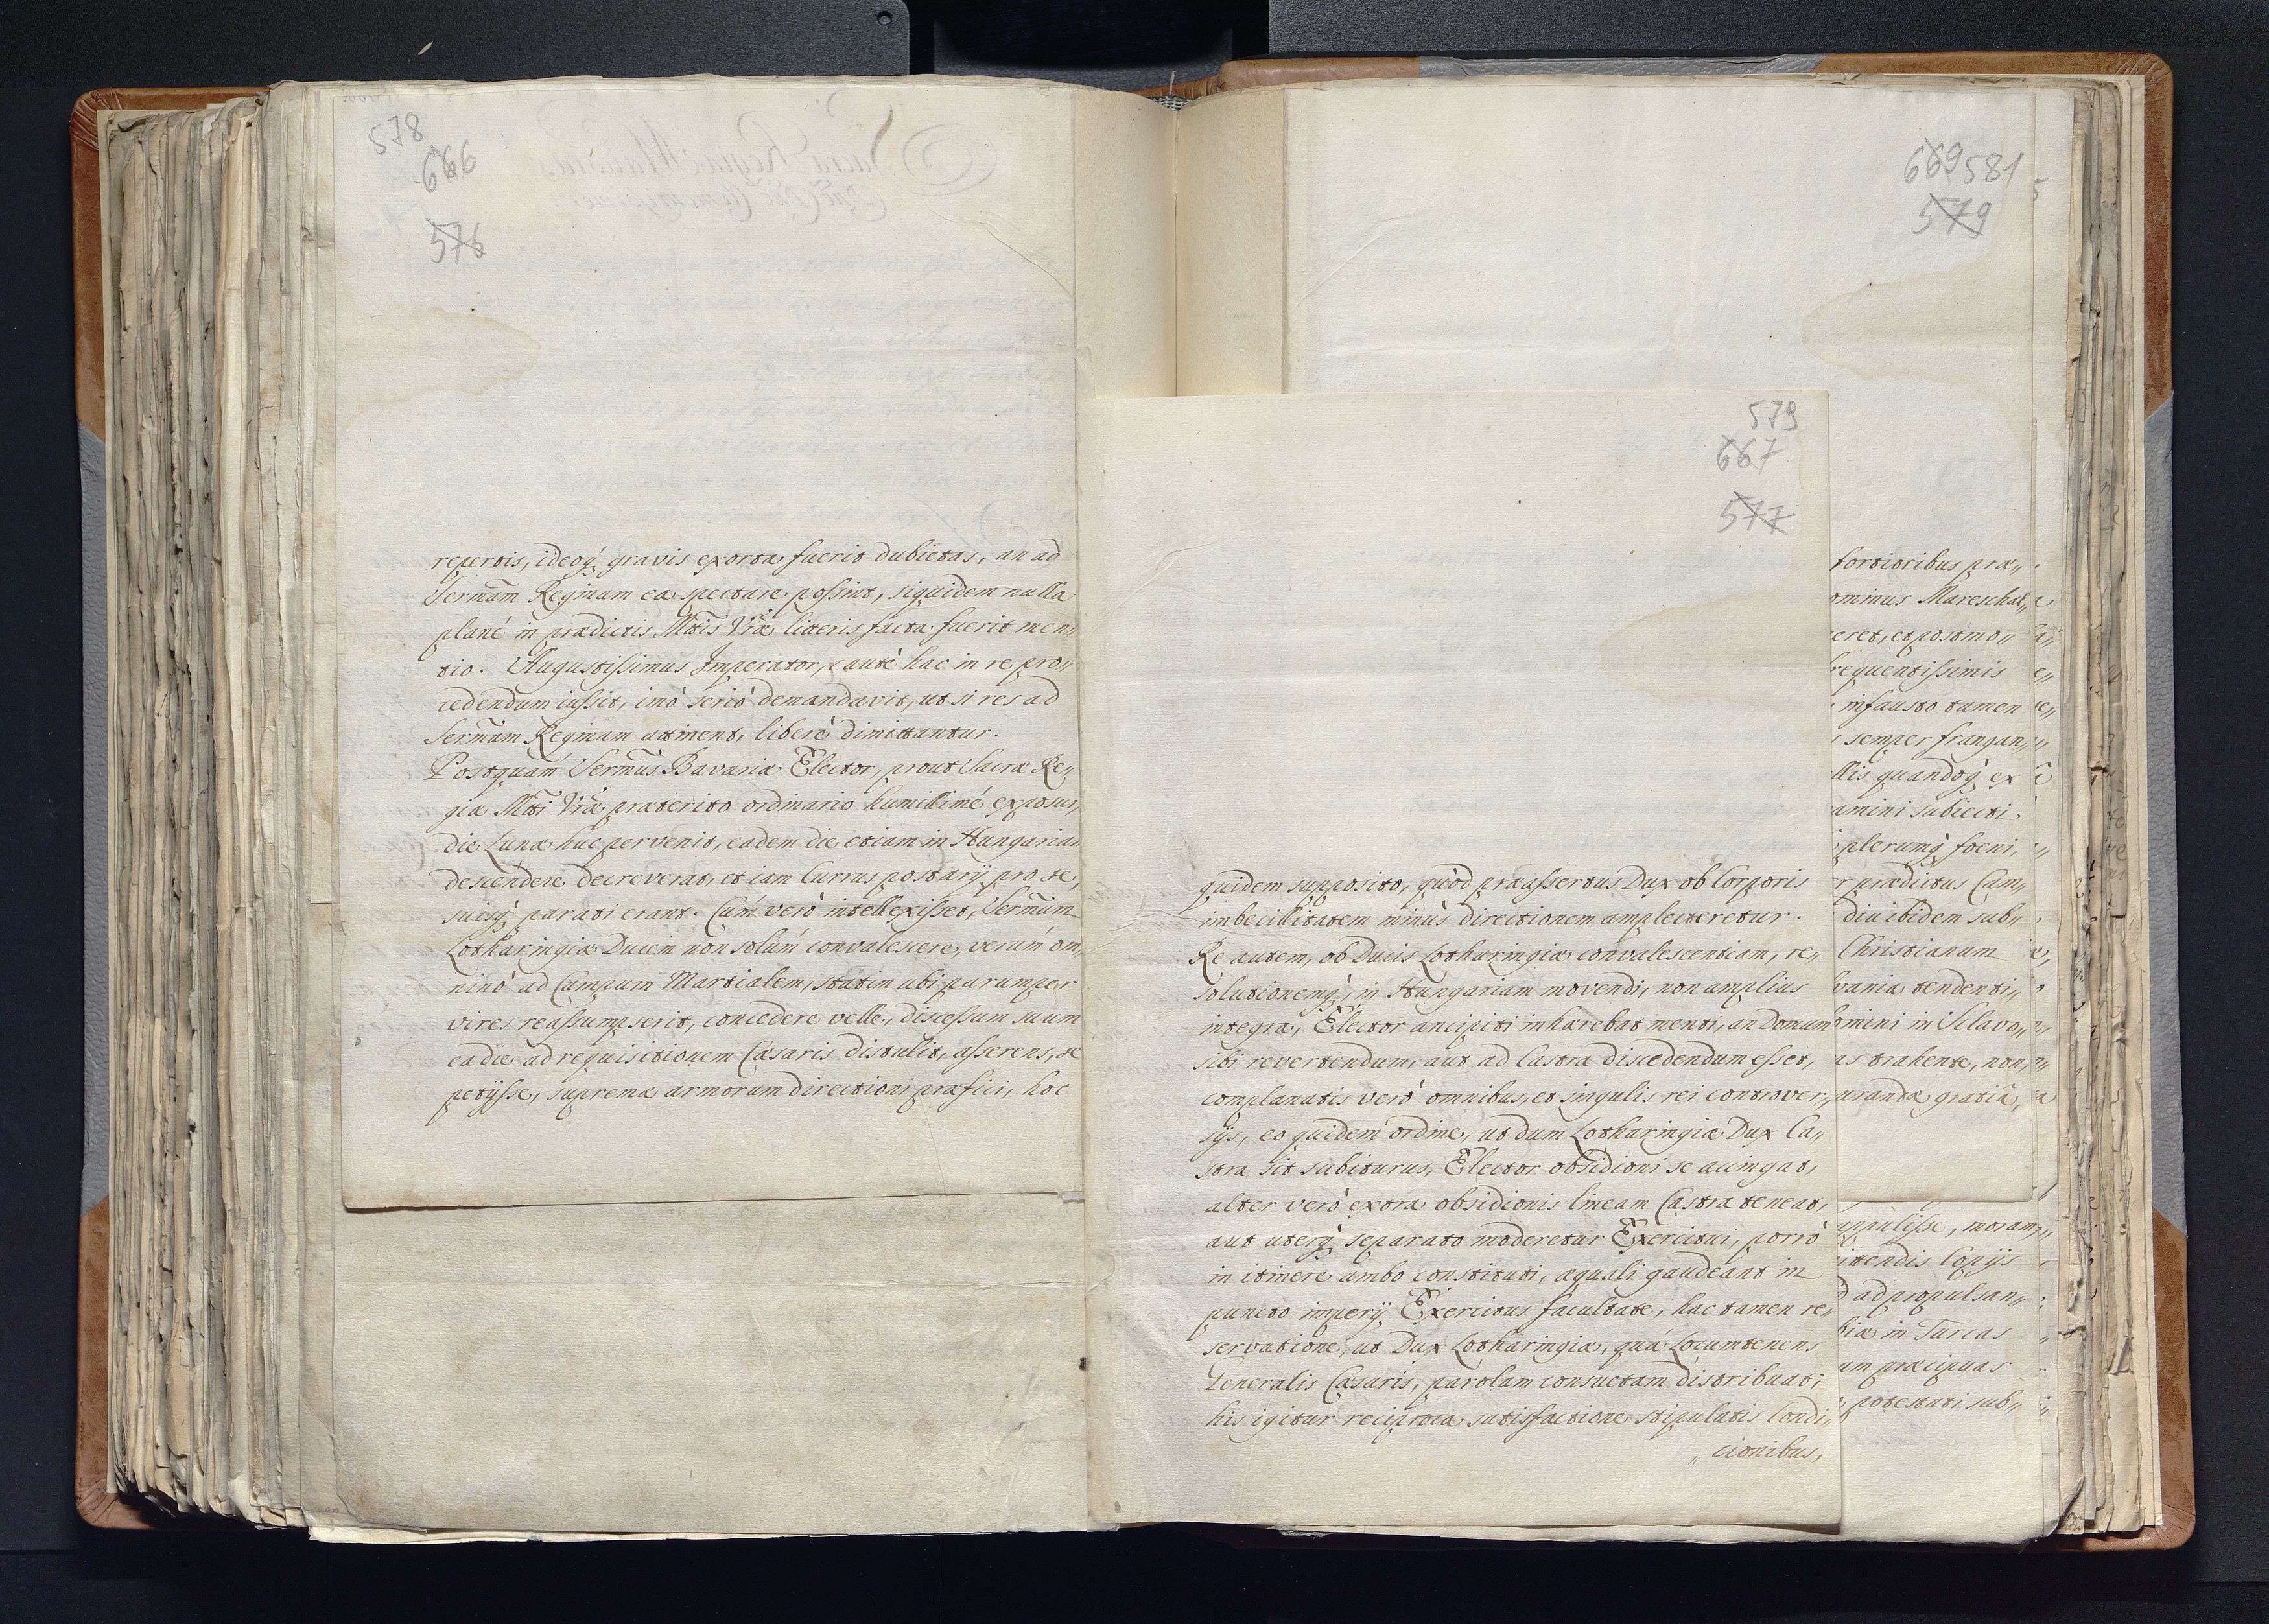 578
666
576
repertis, ideoq́ gravis exorta fuerit dubietas, an ad
Sermãm Reginam ea spectare possint, siquidem nulla
planè in prædictis Mtis Vrã literis facta fuerit men„
tio. Augustissimus Imperator, cautè hac in re pro„
cedendum iussit, imò seriò demandavit, ut si res ad
Sermãm Reginam attinent, liberè dimittantur.
Postquam Sermũs Bavariæ Elector, prout Sacræ Re„
giæ Mtĩ Vrã præterito ordinario humillimè exposui,
die Lunæ huc pervenit, eadem die etiam in Hungariam
descendere decreverat, et iam Currus postarij pro se,
suisq́ parati erant. Cum verò intellexisset, Sermũm
Lotharingiæ Ducem non solùm convalescere, verùm om„
ninò ad Campum Martialem, statim ubi parumper
vires reassumpserit, concedere velle, discessum suum
ea die ad requisitionem Cæsaris distulit, asserens, se
petijsse, supremæ armorum directioni præfici, hoc
579
667
577
quidem supposito, quòd præassertus Dux ob Corporis
imbecillitatem minùs directionem amplecteretur.
Re autem, ob Ducis Lotharingiæ convalescentiam, re„
solutionemq́, in Hungariam movendi, non amplius
integra, Elector ancipiti inhærebat menti, an Domum
sibi revertendum, aut ad Castra discedendum esset,
complanatis verò omnibus, et singulis rei controver„
sijs, eo quidem ordine, ut dum Lotharingiæ Dux Ca„
stra sit subiturus, Elector obsidioni se accingat,
alter verò extra obsidionis lineam Castra teneat,
aut uterq́ separato moderetur Exercitui, porrò
in itinere ambo constituti, æquali gaudeant in
puncto imperij Exercitus facultate, hac tamen re„
servatione, ut Dux Lotharingiæ, quà Locumtenens
Generalis Cæsaris, parolam consuetam distribuat;
his igitur reciproca satisfactione stipulatis Condi„
„cionibus,
669 581
579
fortioribus præ„
ominus Mareschal„
eret, et postmo„
requentissimis
infausto tamen
semper frangan„
llis quandoq́ ex
amini subiecti.
plerumq́ foeni,
r prædictus Cam„
diu ibidem sub„
Christianum
vania tendenti„
omini in Sclavo„
as trahente, non„
uranda gratiâ,
appulisse, moram„
itendis Copijs
ad propulsan„
biæ in Turcas
um præcipuas
potestati sub„